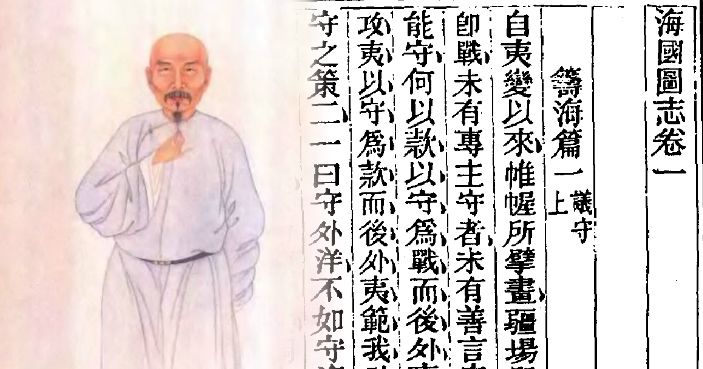 海國圖志卷一
籌海篇一 議守上
自夷變以來帷幄所擘畫疆場
卽戰未有專主守者未有善言
能守何以款以守爲戰而後外
攻夷以守爲款而後外夷範我
守之策二一曰守外洋不如守